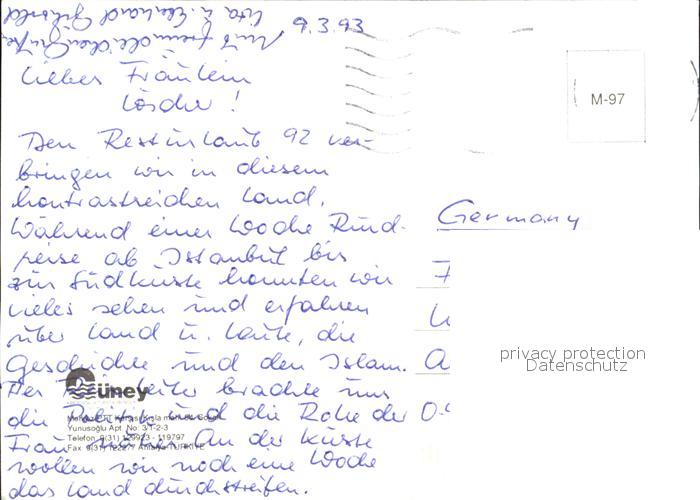 9.3.93
Liebes Fräulein
Löscher!
Den Resturlaub 92 ver-
bringen wir in diesem
kontrastreichen Land.
Während einer Woche Rund-
reise ab Istanbul bis
zur Südküste konnten wir
vieles sehen und erfahren
über Land u. Leute, die
Geschichte und den Islam.
Der Reiseleiter brachte uns
die Politik und die Rolle der
Frau näher. An der Küste
wollen wir noch eine Woche
das Land durchstreifen.
Mit freundlichen Grüßen
u. Ekkehard
M-97
Germany
privacy protection
Datenschutz
Güney
Yunusoğlu Apt. No: 3/1-2-3
Telefon: 9(31) 129923 - 119797
Fax: 9(31) 122277 Antalya-TÜRKİYE